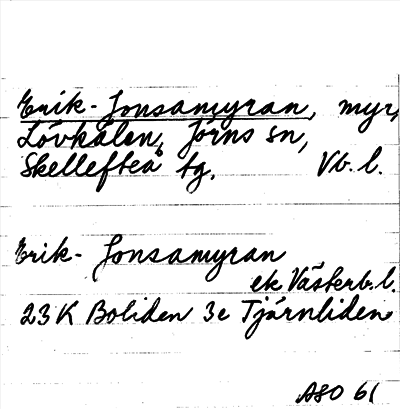 Erik-Jonsamyran, myr,
Lövkålen, Jörns sn,
Skellefteå tg. Vb. l.
Erik-Jonsamyran
ek Västerb. l.
23K Boliden 3e Tjärnliden
ASO 61